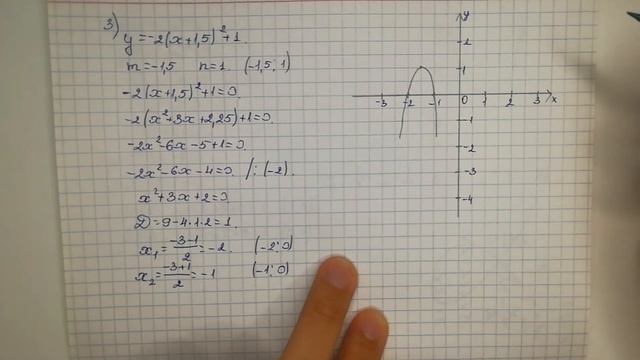 3) y=-2(x+1,5)²+1.
m=-1,5 n=1. (-1,5; 1)
-2(x+1,5)²+1=0.
-2(x²+3x+2,25)+1=0.
-2x²-6x-5+1=0.
-2x²-6x-4=0. /:(-2).
x²+3x+2=0.
D=9-4·1·2=1.
x₁=\frac{-3-1}{2}=-2. (-2;0)
x₂=\frac{-3+1}{2}=-1 (-1;0)
y
2
1
-3 -2 -1 0 1 2 3 x
-1
-2
-3
-4